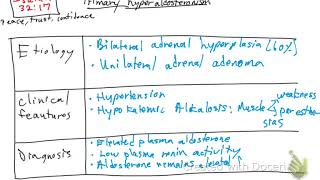 32:17
Peace, trust, confidence
Primary hyperaldosteronism
Etiology
• Bilateral adrenal hyperplasia (60%)
• Unilateral adrenal adenoma
Clinical
feautures
• Hypertension
• Hypokalemic Alkalosis: Muscle weakness
paresthe
sias
Diagnosis
• Elevated plasma aldosterone
• Low plasma renin activity
• Aldosterone remains elevated
with Doceri